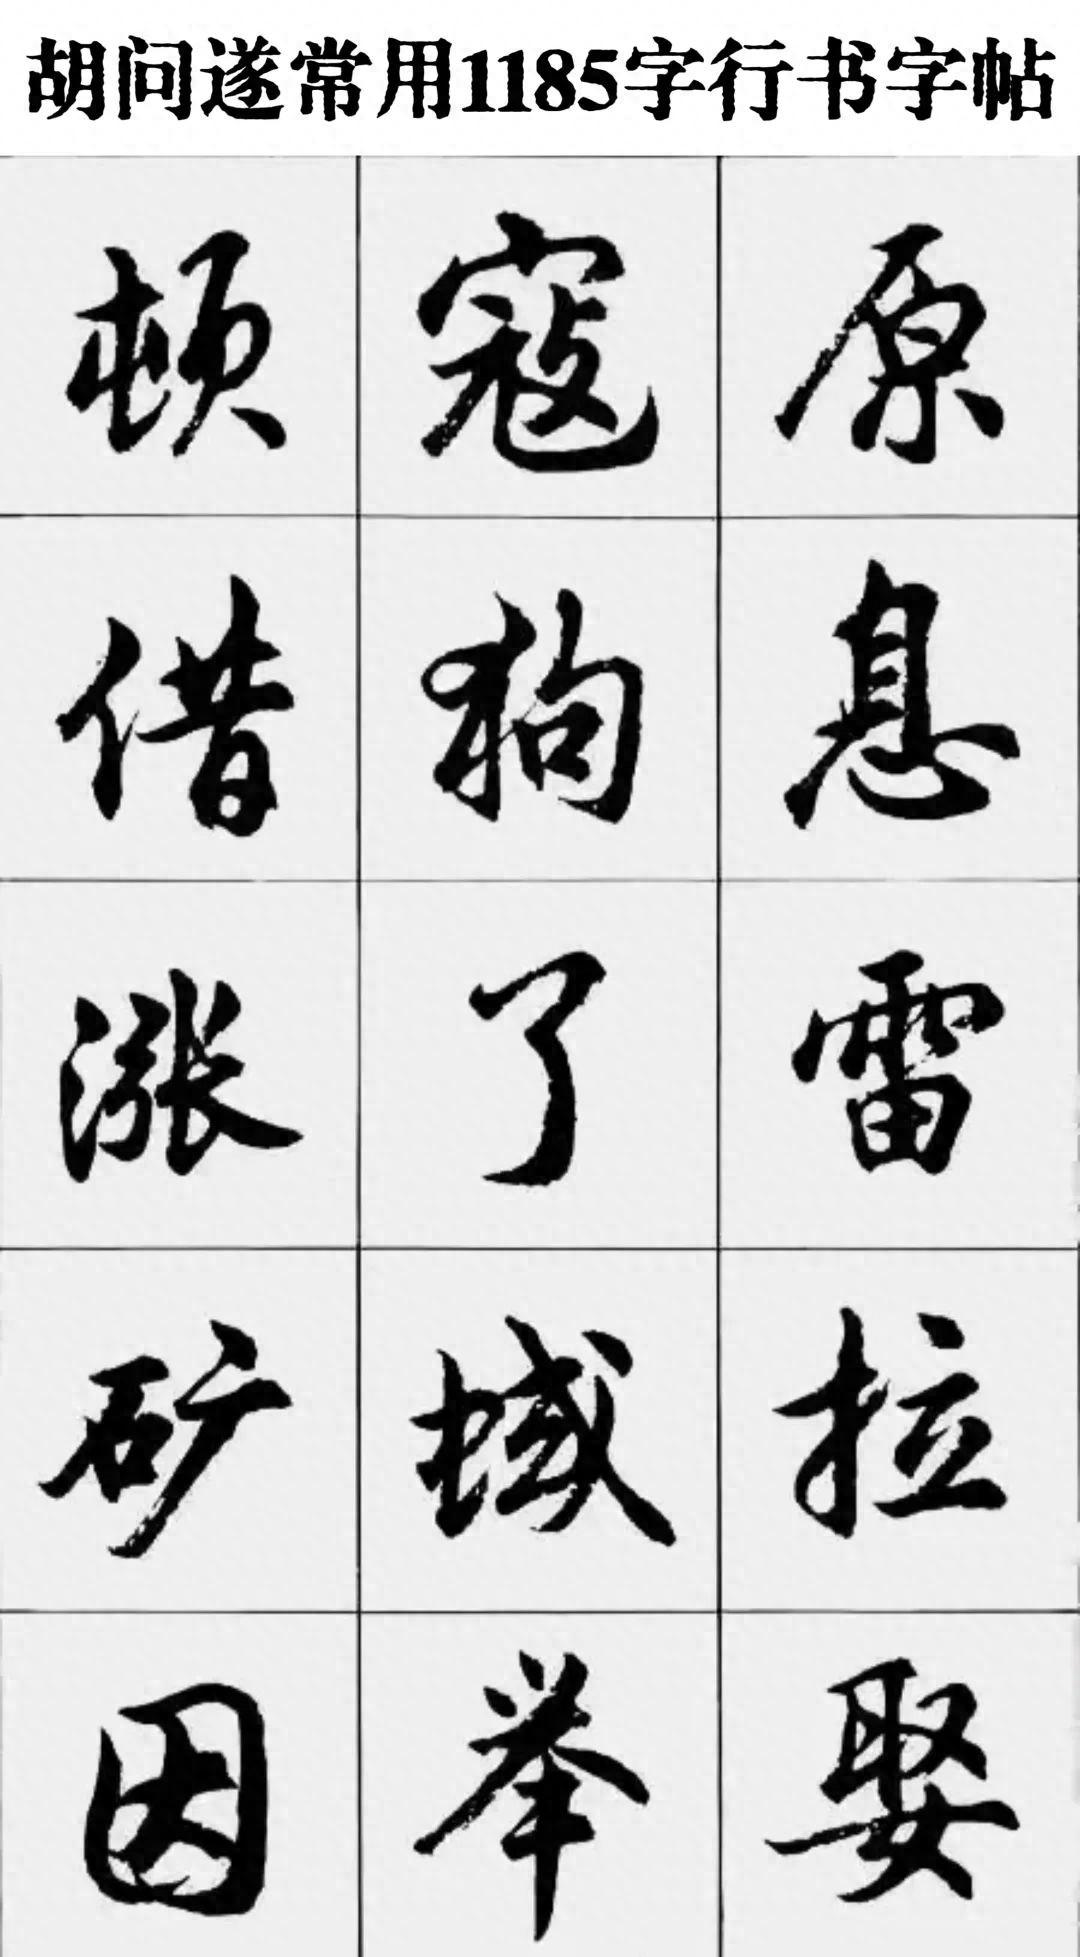 胡问遂常用1185字行书字帖
顿寇原
借狗息
涨了雷
矿域拉
因举娶